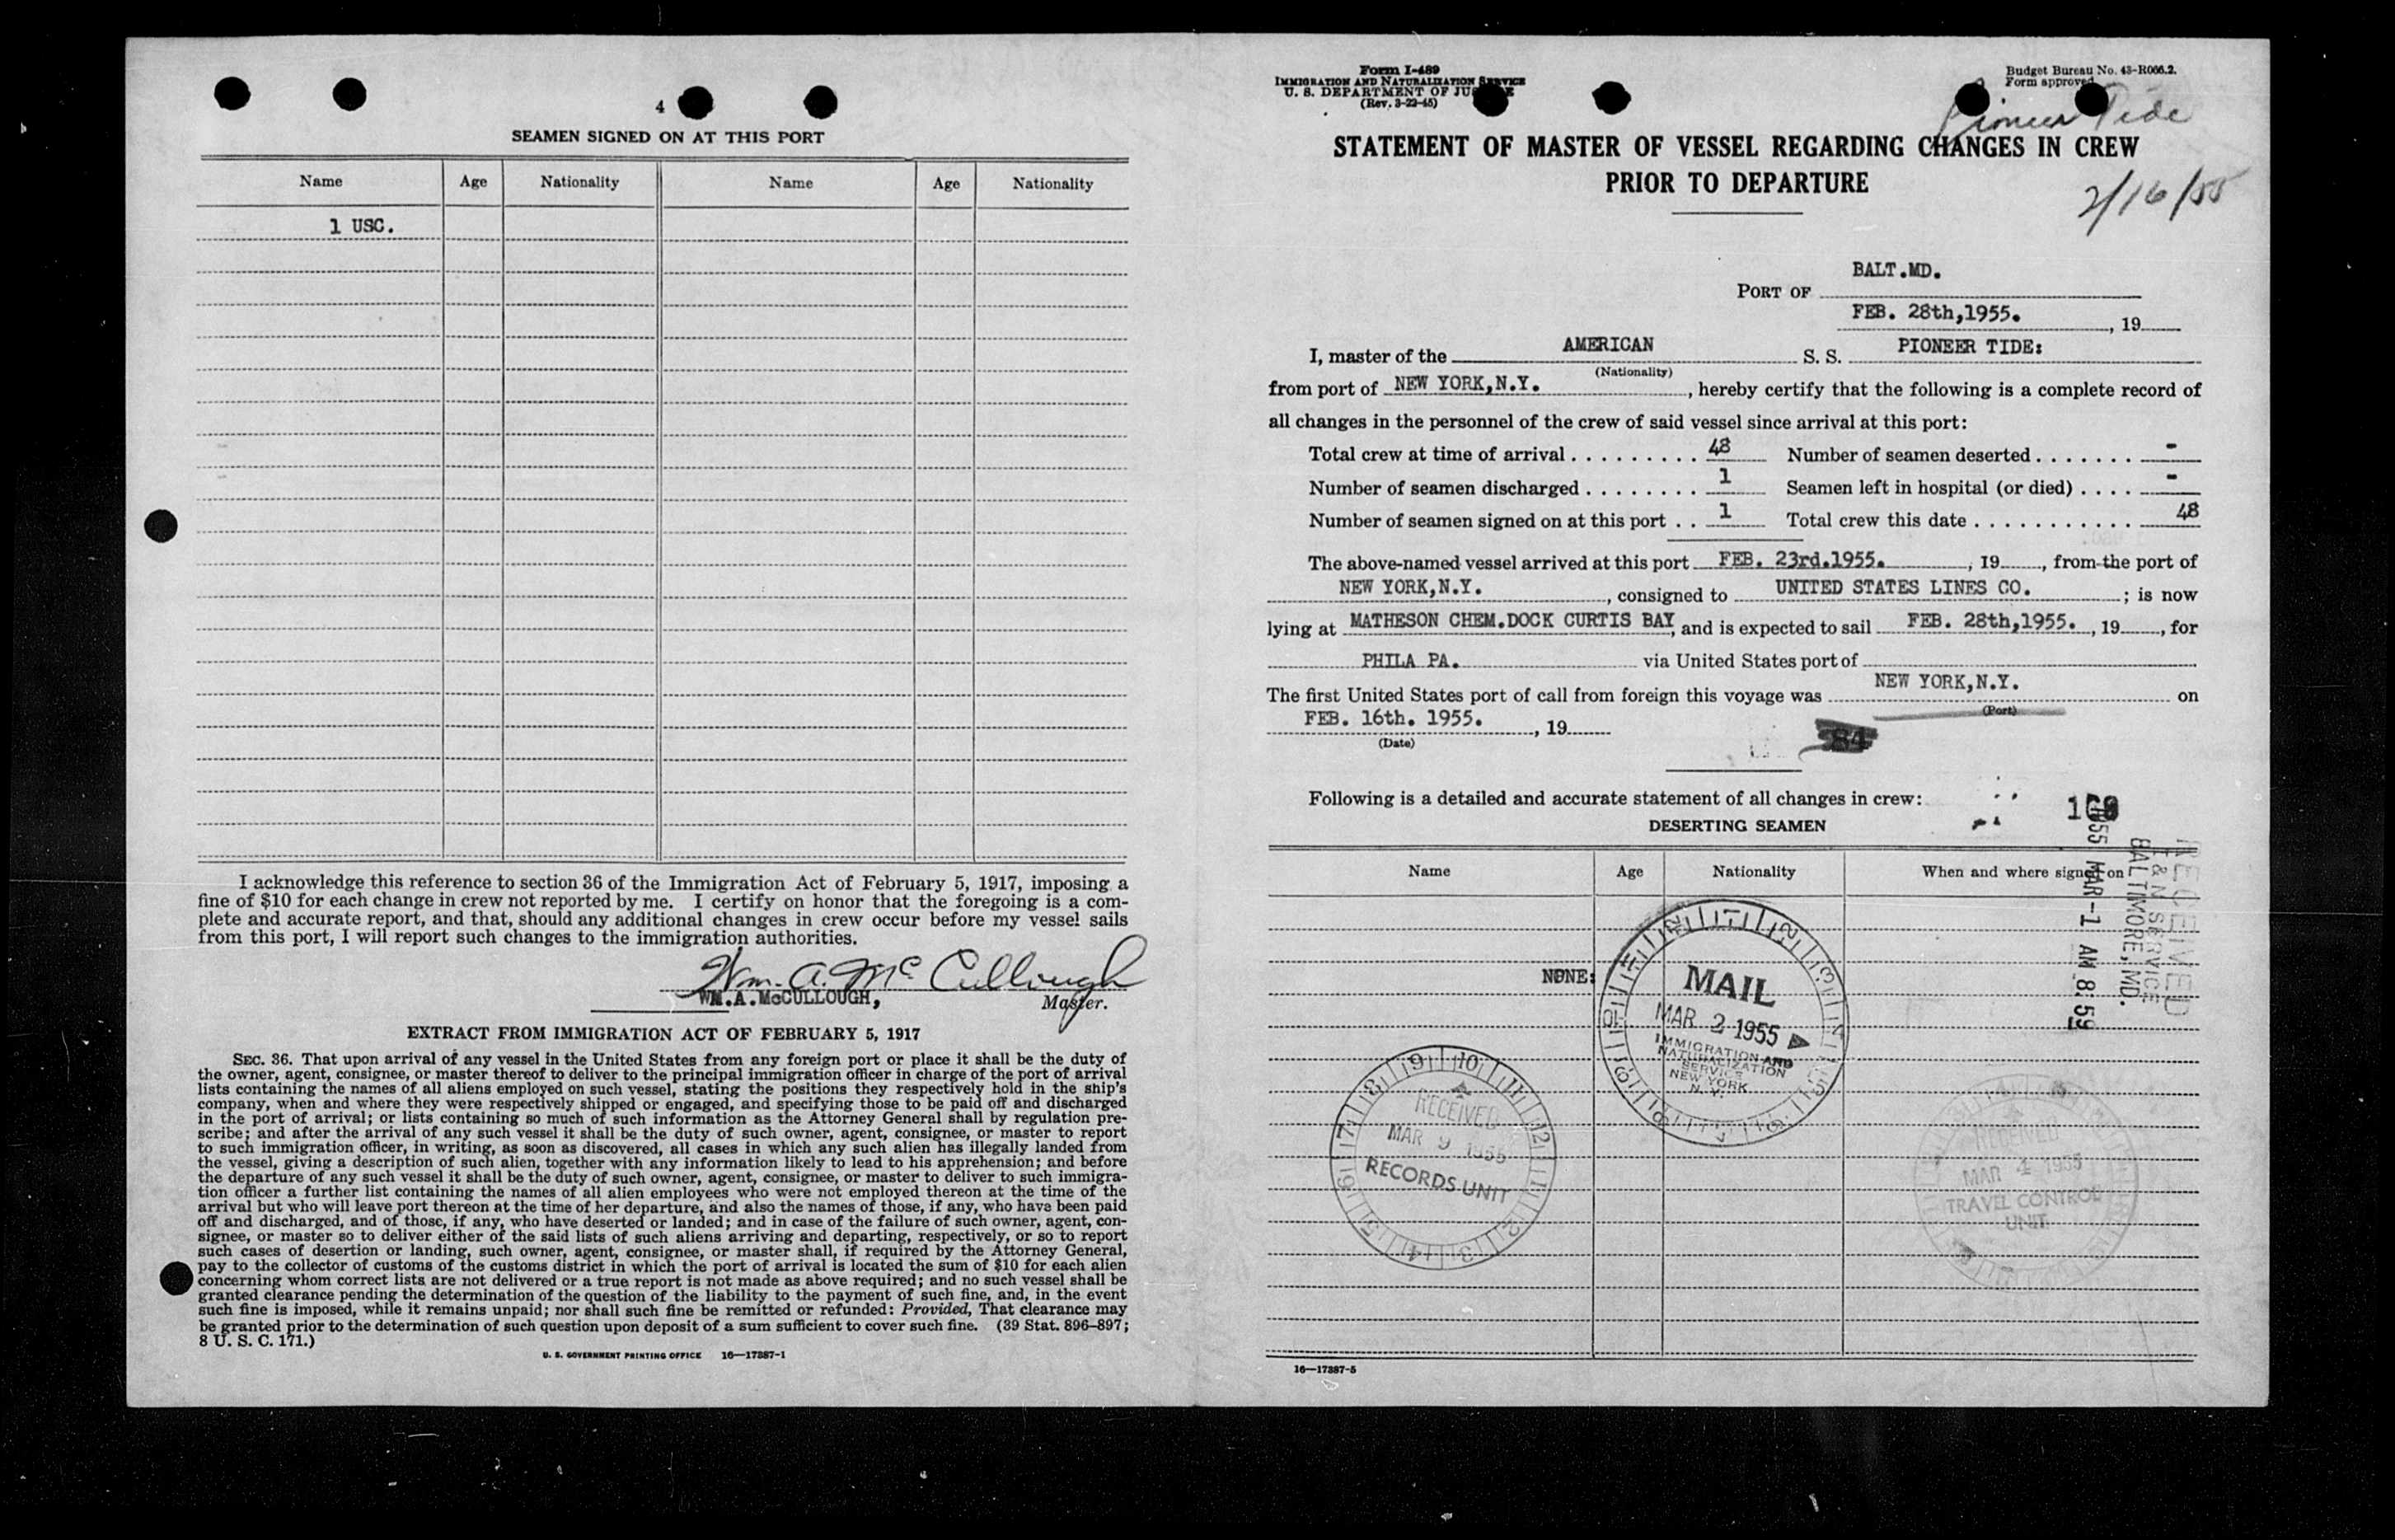 4
SEAMEN SIGNED ON AT THIS PORT
Name Age Nationality Name Age Nationality
1 USC.
I acknowledge this reference to section 36 of the Immigration Act of February 5, 1917, imposing a
fine of $10 for each change in crew not reported by me. I certify on honor that the foregoing is a com-
plete and accurate report, and that, should any additional changes in crew occur before my vessel sails
from this port, I will report such changes to the immigration authorities.
Wm. A. McCullough
WM.A.McCULLOUGH, Master.
EXTRACT FROM IMMIGRATION ACT OF FEBRUARY 5, 1917
SEC. 36. That upon arrival of any vessel in the United States from any foreign port or place it shall be the duty of
the owner, agent, consignee, or master thereof to deliver to the principal immigration officer in charge of the port of arrival
lists containing the names of all aliens employed on such vessel, stating the positions they respectively hold in the ship's
company, when and where they were respectively shipped or engaged, and specifying those to be paid off and discharged
in the port of arrival; or lists containing so much of such information as the Attorney General shall by regulation pre-
scribe; and after the arrival of any such vessel it shall be the duty of such owner, agent, consignee, or master to report
to such immigration officer, in writing, as soon as discovered, all cases in which any such alien has illegally landed from
the vessel, giving a description of such alien, together with any information likely to lead to his apprehension; and before
the departure of any such vessel it shall be the duty of such owner, agent, consignee, or master to deliver to such immigra-
tion officer a further list containing the names of all alien employees who were not employed thereon at the time of the
arrival but who will leave port thereon at the time of her departure, and also the names of those, if any, who have been paid
off and discharged, and of those, if any, who have deserted or landed; and in case of the failure of such owner, agent, con-
signee, or master so to deliver either of the said lists of such aliens arriving and departing, respectively, or so to report
such cases of desertion or landing, such owner, agent, consignee, or master shall, if required by the Attorney General,
pay to the collector of customs of the customs district in which the port of arrival is located the sum of $10 for each alien
concerning whom correct lists are not delivered or a true report is not made as above required; and no such vessel shall be
granted clearance pending the determination of the question of the liability to the payment of such fine, and, in the event
such fine is imposed, while it remains unpaid; nor shall such fine be remitted or refunded: Provided, That clearance may
be granted prior to the determination of such question upon deposit of a sum sufficient to cover such fine. (39 Stat. 896–897;
8 U. S. C. 171.)
U. S. GOVERNMENT PRINTING OFFICE 16—17387-1
Form I-489
IMMIGRATION AND NATURALIZATION SERVICE
U. S. DEPARTMENT OF JUSTICE
(Rev. 3-22-45)
Budget Bureau No. 43-R066.2.
Form approved
Pioneer Tide
STATEMENT OF MASTER OF VESSEL REGARDING CHANGES IN CREW
PRIOR TO DEPARTURE
2/16/55
BALT.MD.
PORT OF
FEB. 28th,1955. , 19
I, master of the AMERICAN S. S. PIONEER TIDE:
(Nationality)
from port of NEW YORK,N.Y. , hereby certify that the following is a complete record of
all changes in the personnel of the crew of said vessel since arrival at this port:
Total crew at time of arrival . . . . . . . . . 48 Number of seamen deserted . . . . . . . -
Number of seamen discharged . . . . . . . . 1 Seamen left in hospital (or died) . . . . -
Number of seamen signed on at this port . . 1 Total crew this date . . . . . . . . . . . . 48
The above-named vessel arrived at this port FEB. 23rd.1955. , 19 , from the port of
NEW YORK,N.Y. , consigned to UNITED STATES LINES CO. ; is now
lying at MATHESON CHEM.DOCK CURTIS BAY, and is expected to sail FEB. 28th,1955. , 19 , for
PHILA PA. via United States port of
The first United States port of call from foreign this voyage was NEW YORK,N.Y. on
(Port)
FEB. 16th. 1955. , 19
(Date)
84
Following is a detailed and accurate statement of all changes in crew:
DESERTING SEAMEN
Name Age Nationality When and where signed on
RECEIVED
I & N SERVICE
BALTIMORE, MD.
1955 MAR -1 AM 8:59
NONE:
MAIL
MAR 2 1955
IMMIGRATION AND
NATURALIZATION
SERVICE
NEW YORK
N. Y.
RECEIVED
MAR 9 1955
RECORDS UNIT
RECEIVED
MAR 4 1955
TRAVEL CONTROL
UNIT
16—17387-5